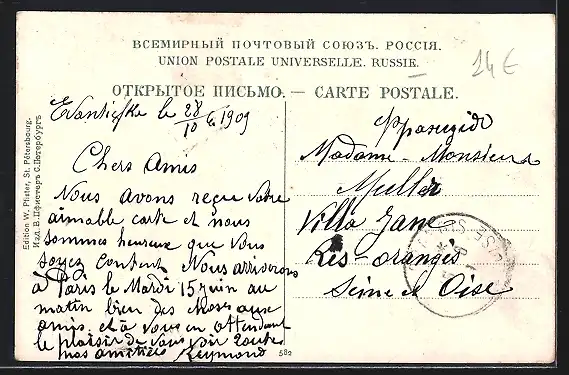 ВСЕМИРНЫЙ ПОЧТОВЫЙ СОЮЗЪ. РОССІЯ.
UNION POSTALE UNIVERSELLE. RUSSIE.
14€
ОТКРЫТОЕ ПИСЬМО. — CARTE POSTALE.
le 28/10 1909
Chers Amis
Nous avons reçue votre
aimable carte et nous
sommes heureuse que vous
soyez content. Nous arriverons
à Paris le Mardi 15 juin au
matin bien des choses aux
amis. et à vous en attendant
le plaisir de vous voir toutes
nos amitiés Reymond
Франція
Madame - Monsieur
Muller
Villa Jane
Ris-Orangis
Seine et Oise
582
Edition W. Pfister, St. Pétersbourg.
Изд. В. Пфистеръ С. Петербургъ